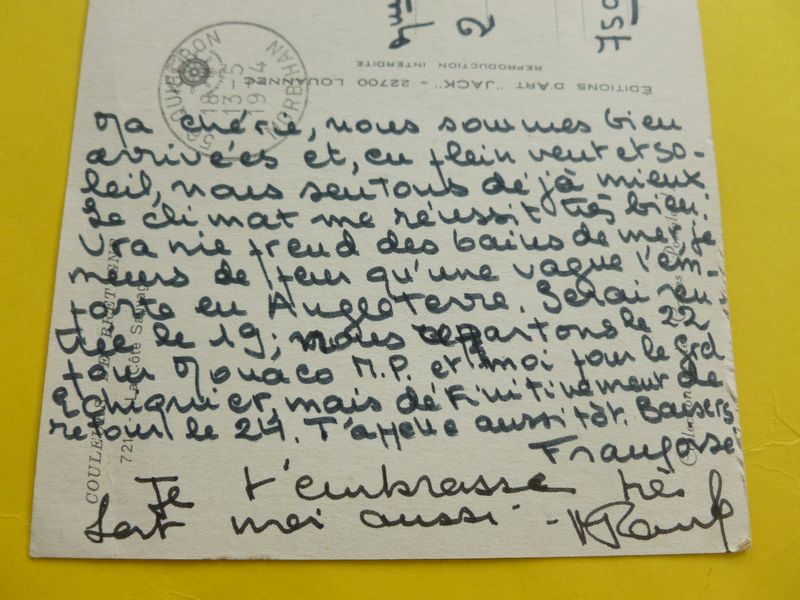 Ma chérie, nous sommes bien
arrivées et, en plein vent et so-
leil, nous sentons déjà mieux
Le climat me réussit très bien.
Uranie prend des bains de mer, je
meurs de peur qu'une vague l'em-
porte en Angleterre. Serai ren-
trée le 19, nous repartons le 22
pour Monaco M.P. et moi pour le Grd
Echiquier, mais définitivement de
retour le 24. T'appelle aussitôt. Baisers
Françoise
Je t'embrasse très
fort moi aussi -
ÉDITIONS D'ART "JACK" - 22700 LOUANNEC
REPRODUCTION INTERDITE
QUIBERON
18 H
13-5
1974
MORBIHAN
COULEURS DE BRETAGNE
721 La Côte Sauvage
2
750